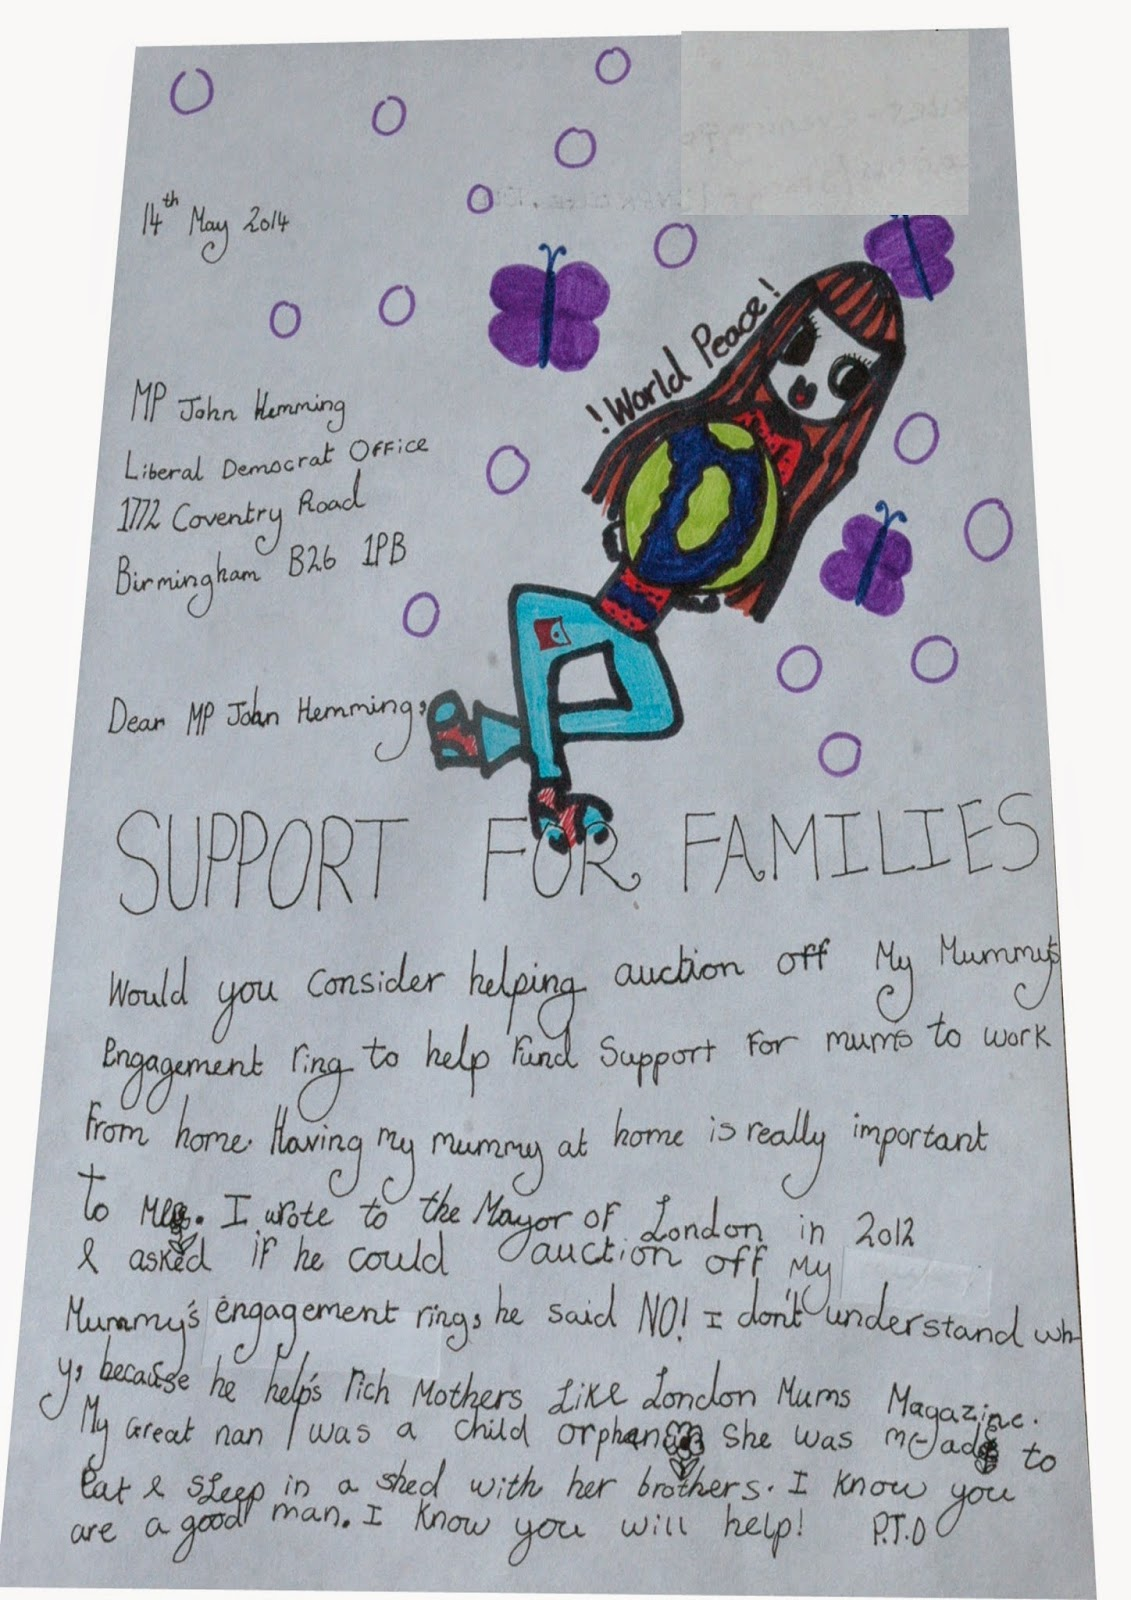 14th May 2014
!World Peace!
MP John Hemming
Liberal Democrat Office
1772 Coventry Road
Birmingham B26 1PB
Dear MP John Hemming,
SUPPORT FOR FAMILIES
Would you consider helping auction off My Mummy's
Engagement ring to help fund support for mums to work
from home. Having my mummy at home is really important
to Me. I wrote to the Mayor of London in 2012
& asked if he could auction off my
Mummy's engagement ring, he said NO! I don't understand wh-
y, because he help's rich Mothers Like London Mums Magazine.
My Great nan was a child orphan She was mead to
Eat & sleep in a shed with her brothers. I know you
are a good man. I know you will help! P.T.O